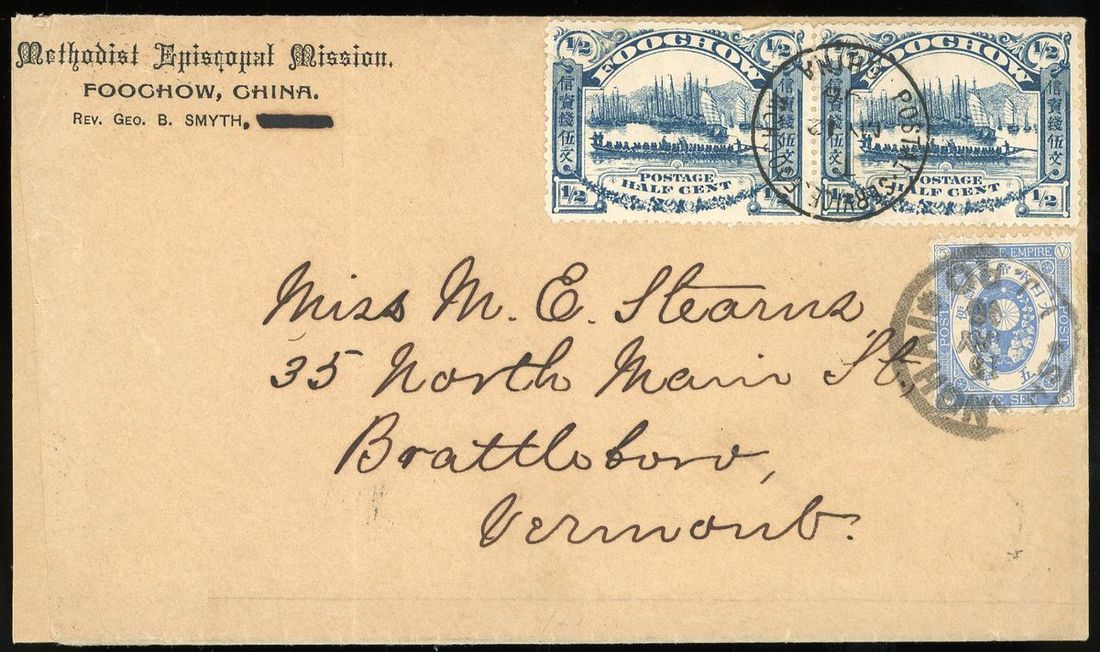 Methodist Episcopal Mission.
FOOCHOW, CHINA.
REV. GEO. B. SMYTH,
1/2 FOOCHOW 1/2
信資錢伍文
信資錢伍文
POSTAGE
HALF CENT
1/2 1/2
1/2 FOOCHOW 1/2
信資錢伍文
信資錢伍文
POSTAGE
HALF CENT
1/2 1/2
FOOCHOW POSTAL SERVICE CHINA
EMPIRE
POST
POST
FIVE SEN
Miss M. E. Stearns
35 North Main St.
Brattleboro,
Vermont.